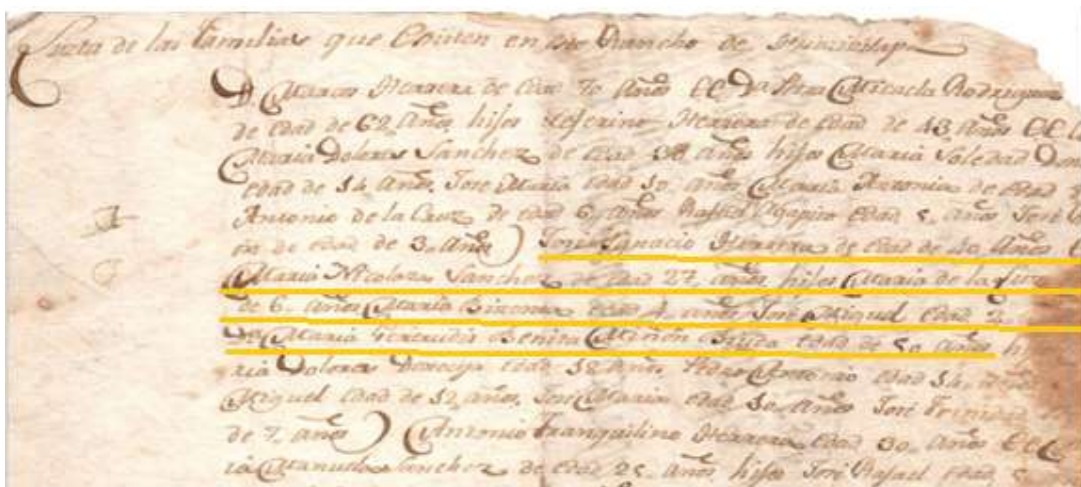 Lista de las Familias que Existen en este Rancho de
D. Marcos Herrera de edad 70 años CC Da. Ana Micaela Rodriguez
de edad de 62 años hijos Seferino Herrera de edad de 43 años CC
Maria Dolores Sanchez de edad 38 años hijos Maria Soledad
edad de 14 años. Jose Maria edad 10 años Maria Antonia de edad
Antonio de la Cruz de edad 6 años Rafael Agapito edad 5 años José
de edad de 3 años) José Ignacio Herrera de edad de 40 años
Maria Nicolasa Sanchez de edad 27 años hijos Maria de la
de 6 años Maria Simona edad 4 años José Miguel edad 2
Da. Maria Gertrudis Benita edad de 50 años
ria Dolores edad 18 años. Pedro Antonio edad 14 años
Miguel edad de 12 años. José Maria edad 10 años José Trinidad
de 7 años) Antonio Tranquilino Herrera edad 30 años
ria Manuela Sanchez de edad 25 años hijos José Rafael edad